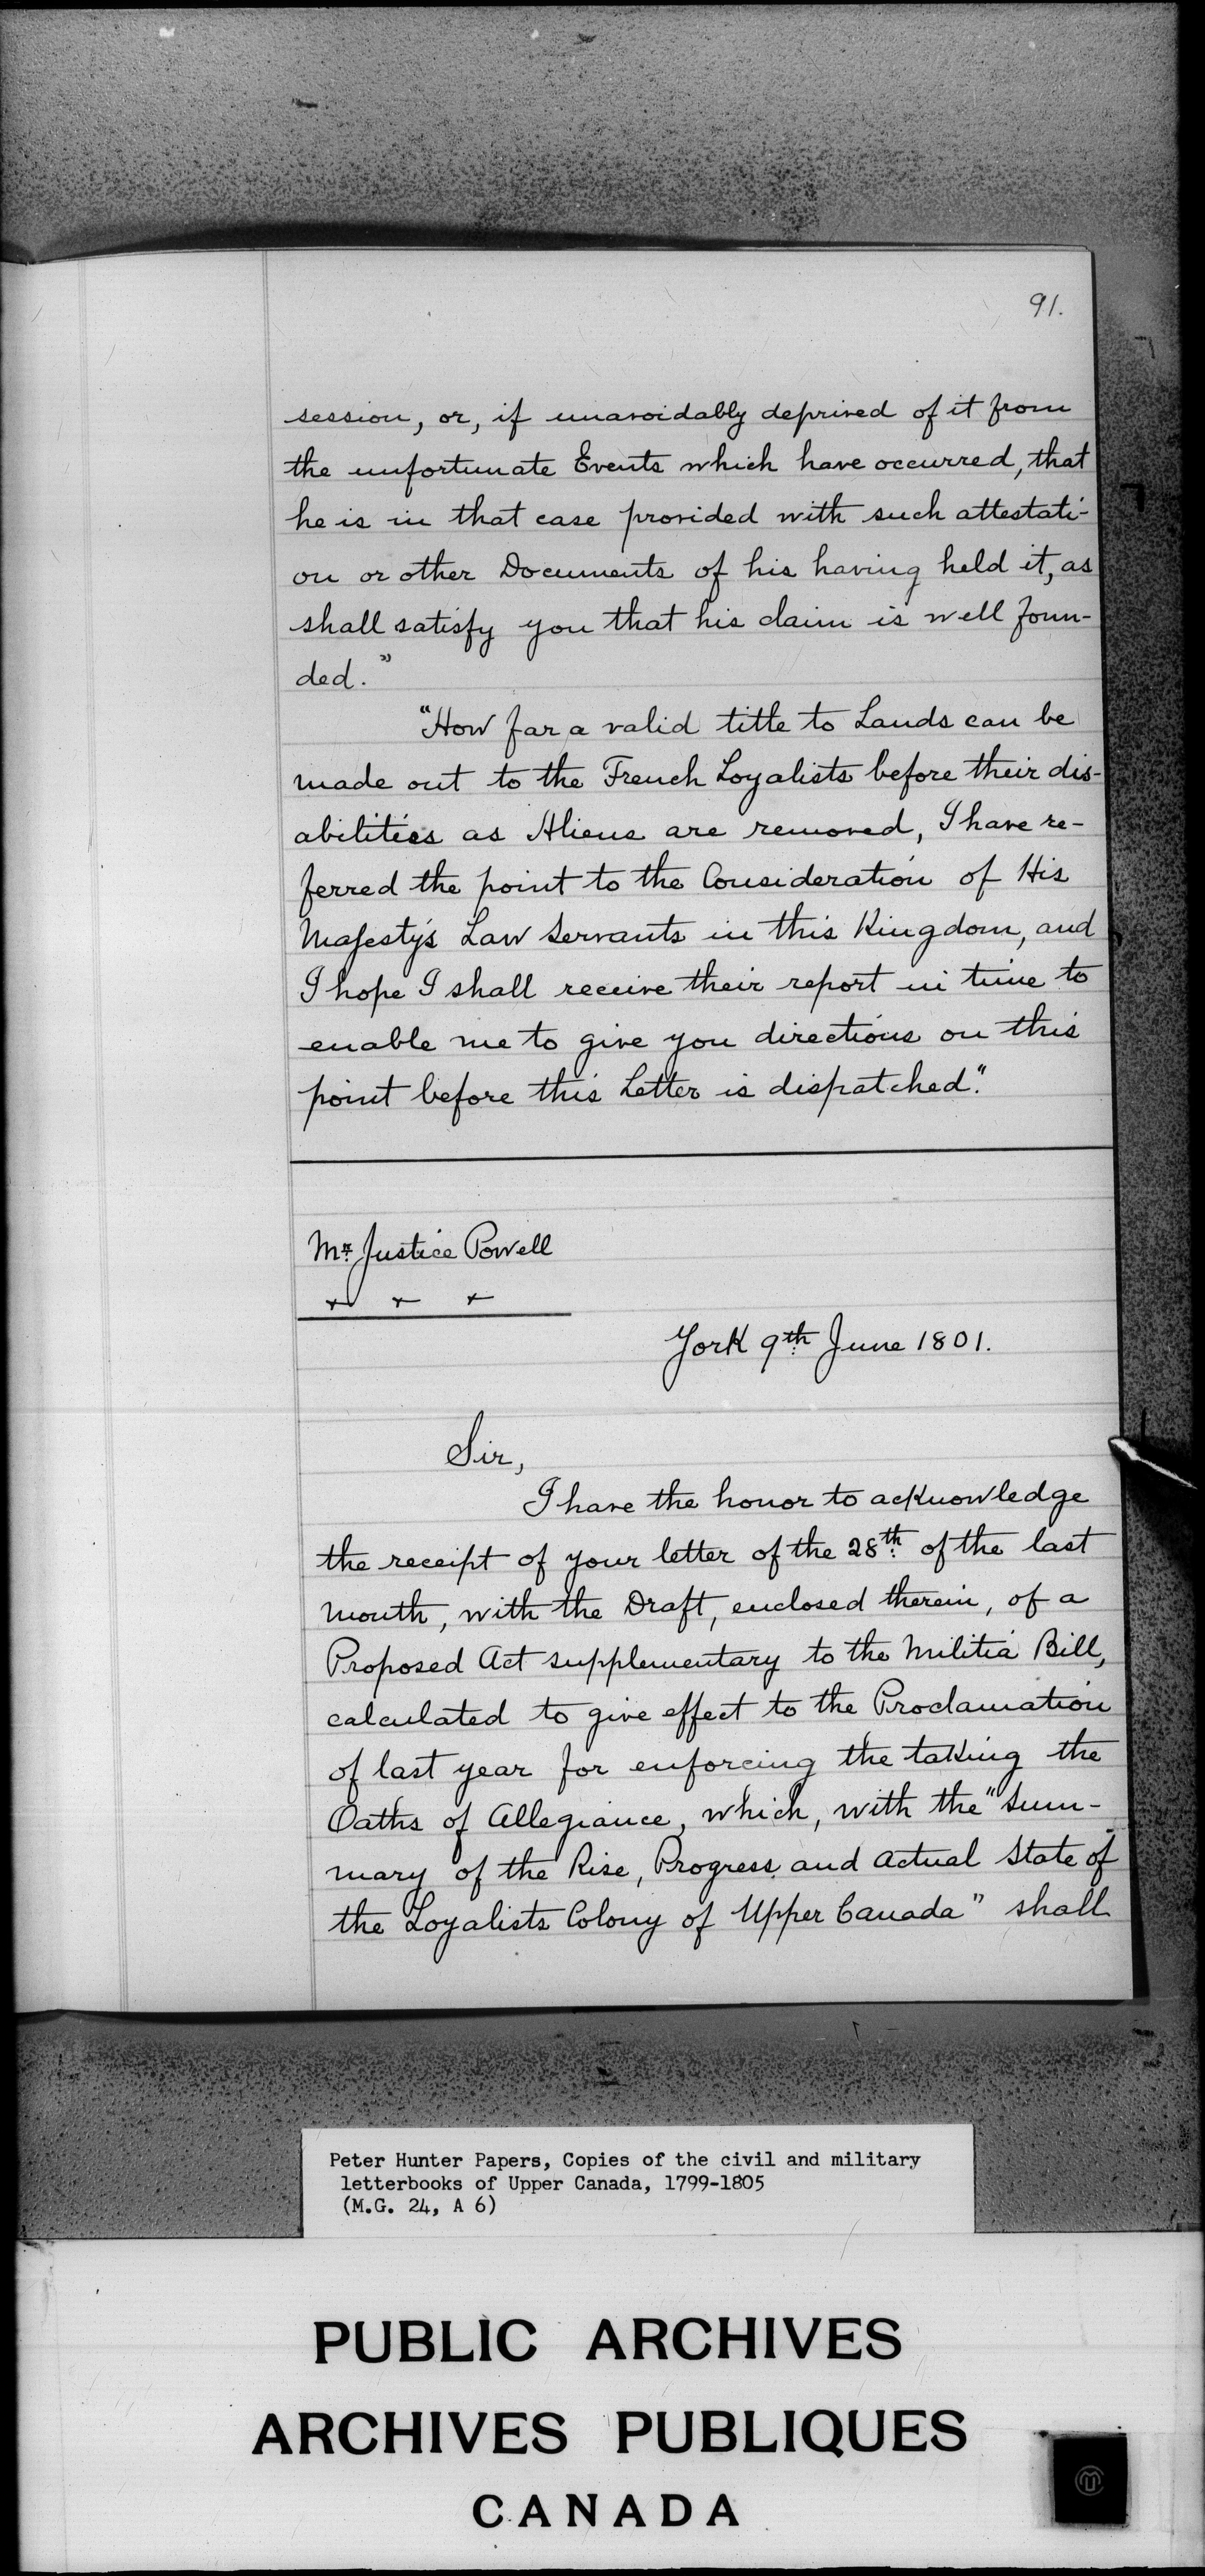 91.
session, or, if unavoidably deprived of it from
the unfortunate Events which have occurred, that
he is in that case provided with such attestati-
on or other Documents of his having held it, as
shall satisfy you that his claim is well foun-
ded."
"How far a valid title to Lands can be
made out to the French Loyalists before their dis-
abilities as Aliens are removed, I have re-
ferred the point to the Consideration of His
Majesty's Law Servants in this Kingdom, and
I hope I shall receive their report in time to
enable me to give you directions on this
point before this Letter is dispatched."
Mr. Justice Powell
x x x
York 9th June 1801.
Sir,
I have the honor to acknowledge
the receipt of your letter of the 28th of the last
month, with the Draft, enclosed therein, of a
Proposed Act supplementary to the Militia Bill,
calculated to give effect to the Proclamation
of last year for enforcing the taking the
Oaths of Allegiance, which, with the "Sum-
mary of the Rise, Progress and actual State of
the Loyalists Colony of Upper Canada" shall
Peter Hunter Papers, Copies of the civil and military
letterbooks of Upper Canada, 1799-1805
(M.G. 24, A 6)
PUBLIC ARCHIVES
ARCHIVES PUBLIQUES
CANADA